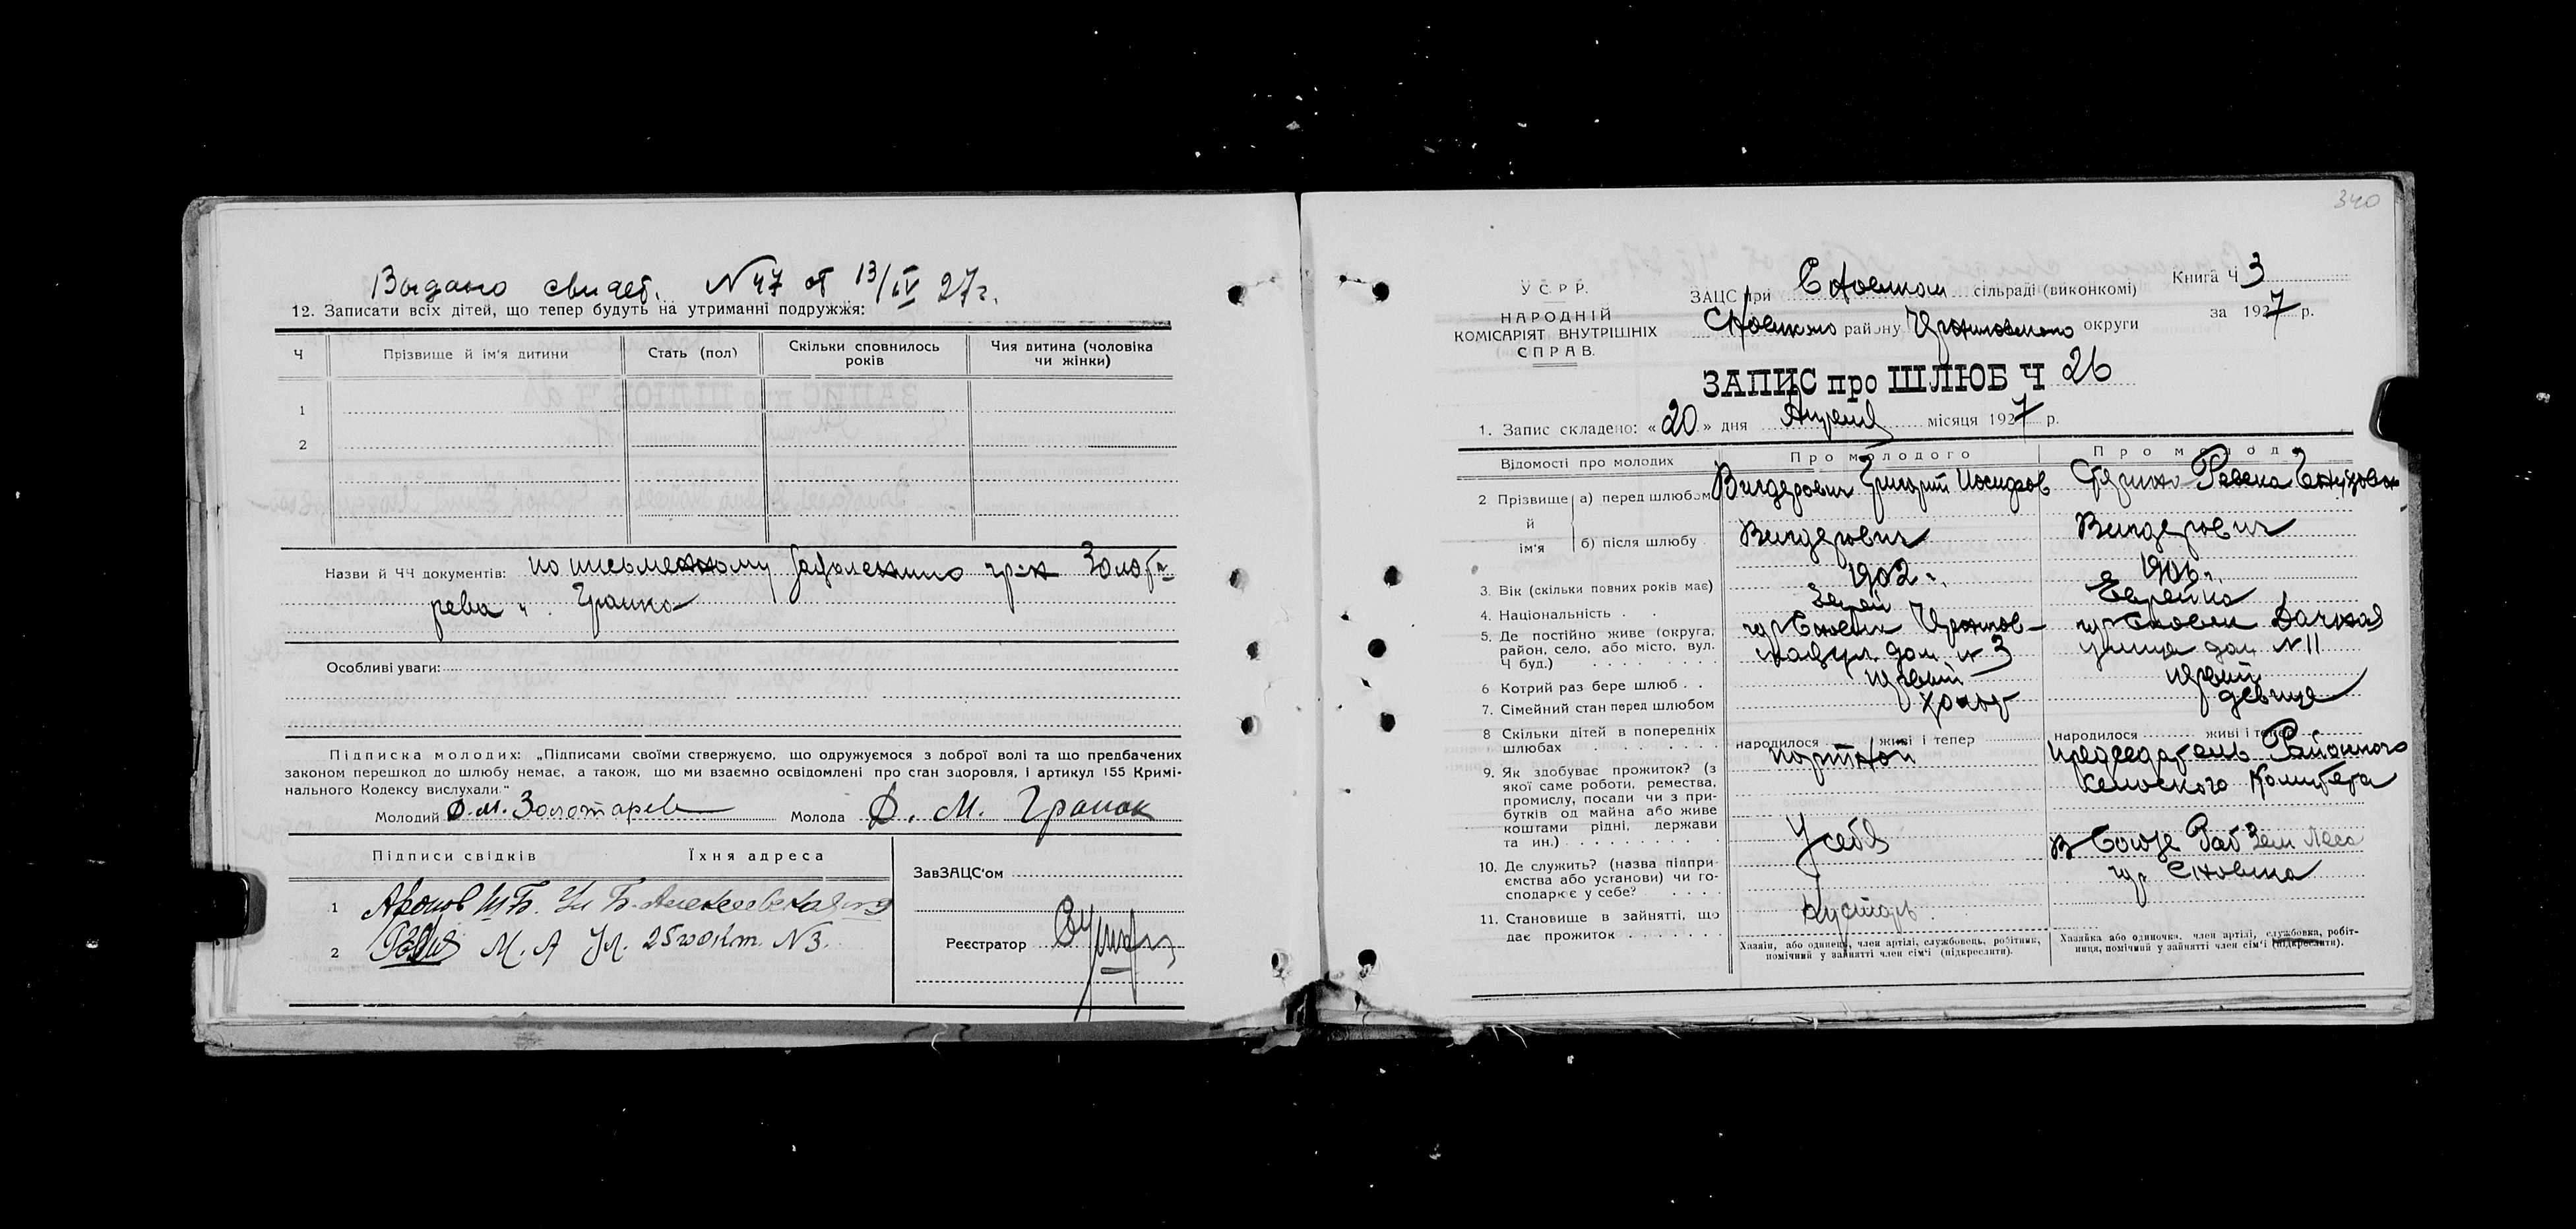 Выдано свидет. N 47 от 13/IV 27 г.
12. Записати всіх дітей, що тепер будуть на утриманні подружжя:
Ч Прізвище й ім'я дитини Стать (пол) Скільки сповнилось років Чия дитина (чоловіка чи жінки)
1
2
Назви й ЧЧ документів: по письменному
Особливі уваги:
Підписка молодих: „Підписами своїми ствержуємо, що одружуємося з доброї волі та що предбачених
законом перешкод до шлюбу немає, а також, що ми взаємно освідомлені про стан здоровля, і артикул 155 Кримі-
нального Кодексу вислухали."
Молодий Д. М. Золотарев Молода Д. М. Гранок
Підписи свідків Їхня адреса
1 Аронов Ш Б. Ул
2 М. А Ул. 25 Окт. N 3.
ЗавЗАЦС'ом
Реєстратор
340
У С Р Р.
НАРОДНІЙ
КОМІСАРІЯТ ВНУТРІШНІХ
СПРАВ.
ЗАЦС при Сновском сільраді (виконкомі)
Сновского району округи
Книга Ч 3
за 1927 р.
ЗАПИС про ШЛЮБ Ч 26
1. Запис складено: «20» дня Апреля місяця 1927 р.
Відомості про молодих Про молодого Про молод
2 Прізвище й ім'я а) перед шлюбом Виндерович Григорий Иосифов Ревека
б) після шлюбу Виндерович Виндерович
3. Вік (скільки повних років має) 1902 г. 1906 г.
4. Національність Еврей Еврейка
5. Де постійно живе (округа, гор Сновск гор Сновск Дачная
район, село, або місто, вул. дом N 3 улица дом N 11
Ч буд.)
6 Котрий раз бере шлюб первый первый
7. Сімейний стан перед шлюбом холост девица
8 Скільки дітей в попередніх
шлюбах народилося живі і тепер народилося живі і тепер
9. Як здобуває прожиток? (з портной председатель Районного
якої саме роботи, ремества, Комитета
промислу, посади чи з при-
бутків од майна або живе
коштами рідні, держави
та ин.)
10. Де служить? (назва підпри- У себя в Союзе Раб Зем Леса
ємства або установи) чи го- гор Сновска
сподарює у себе?
11. Становище в зайнятті, що кустарь
дає прожиток
Хазяїн, або одинець, член артілі, службовець, робітник,
помічний у зайнятті член сім'ї (підкреслити).
Хазяйка або одиночка, член артілі, службовка, робіт-
ниця, помічний у зайнятті член сім'ї (підкреслити).